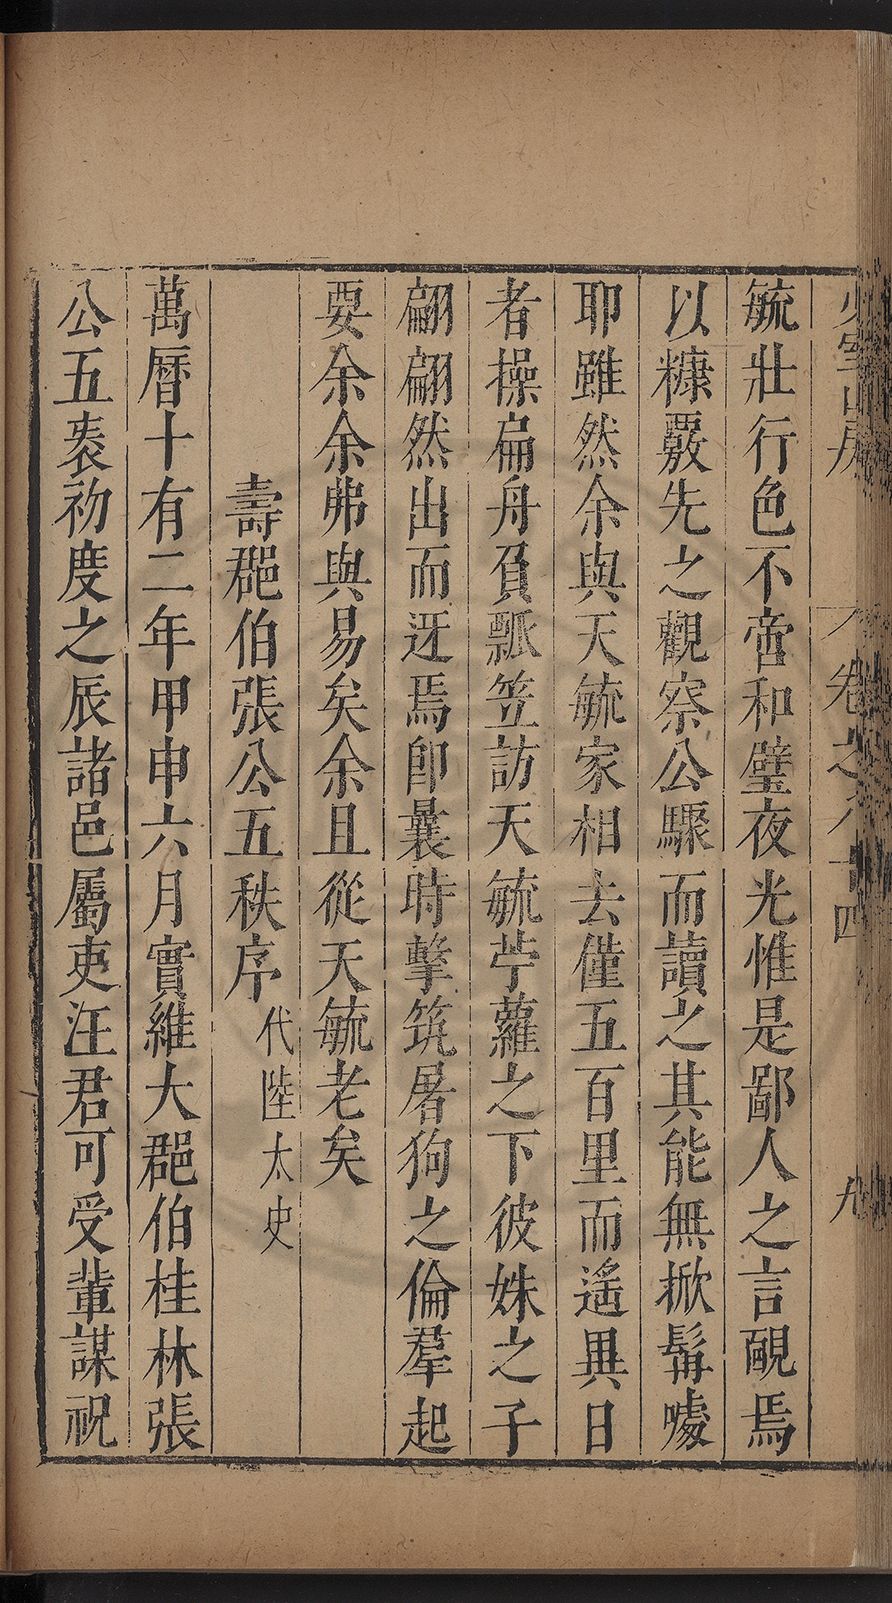 少室山房 卷之八十四 九
毓壯行色不啻和璧夜光惟是鄙人之言靦焉
以糠覈先之觀察公驟而讀之其能無掀髯噱
耶雖然余與天毓家相去僅五百里而遙異日
者操扁舟負瓢笠訪天毓苧蘿之下彼姝之子
翩翩然出而迓焉卽曩時擊筑屠狗之倫羣起
要余余弗與易矣余且從天毓老矣
壽郡伯張公五秩序 代陸太史
萬曆十有二年甲申六月實維大郡伯桂林張
公五袠初度之辰諸邑屬吏汪君可受輩謀祝